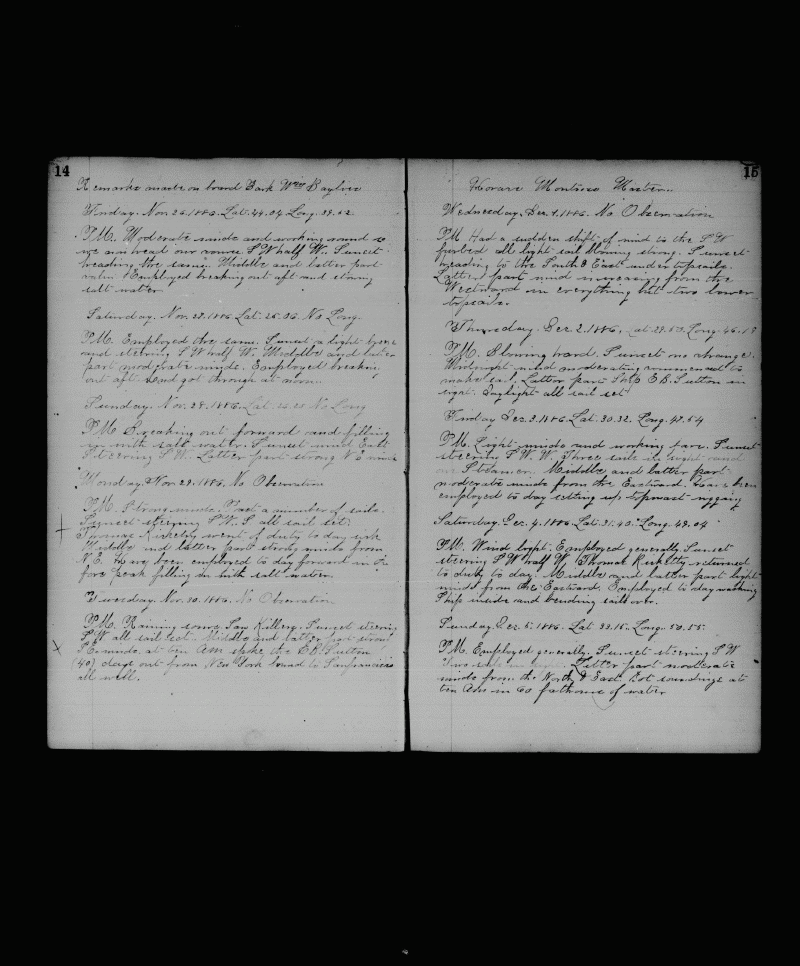 14
Remarks made on board Bark Wm Baylies
Friday. Nov. 26. 1886. Lat. 24.04 Long. 39.52
P.M. Moderate winds and working round so
we can head our course S W half W. Sunset
heading the same. Middle and latter part
calm. Employed breaking out aft and
salt water
Saturday. Nov. 27. 1886 Lat. 25.05. No Long.
P.M. Employed the same. Sunset a light breeze
and steering S W half W. Middle and latter
part moderate winds. Employed breaking
out aft. And got through at noon.
Sunday. Nov. 28. 1886. Lat. 26.28 No Long
P.M. Breaking out forward and filling
up with salt water. Sunset wind East
Steering S W. Latter part strong N E winds
Monday. Nov. 29. 1886. No Observation
P.M. Strong winds. Took a number of sails.
Sunset steering S W. S all sail set.
Thomas Ricketty went of duty to day sick
Middle and latter part strong winds from
N.E. Have been employed to day forward in
fore peak filling up with salt water.
Tuesday. Nov. 30. 1886. No Observation
P.M. Raining some. Saw Killers. Sunset steering
S W all sail set. Middle and latter part strong
S E winds. at ten AM spoke the E.B. Sutton
(40) days out from New York bound to Sanfrancisco
all well.
15
Horace Montross Master
Wednesday. Dec. 1. 1886. No Observation
P.M Had a sudden shift of wind to the S W
furled all light sail blowing strong. Sunset
heading to the South & East under topsails.
Latter part wind increasing from the
Westward in everything but two lower
topsails.
Thursday. Dec. 2. 1886. Lat. 29.50 Long. 46.18
P.M. Blowing hard. Sunset no change.
Midnight wind moderating commenced to
make sail. Latter part Ship E B. Sutton in
sight. Daylight all sail set
Friday Dec. 3. 1886. Lat. 30.32. Long. 47.54
P.M. Light winds and working fare. Sunset
steering S W. W. Three sails in sight and
one Steamer. Middle and latter part
moderate winds from the Eastward. Have been
employed to day setting up topmast rigging
Saturday. Dec. 4. 1886 Lat. 31.40. Long. 49.04
P.M. Wind light. Employed generally. Sunset
steering S W half W. Thomas Ricketty returned
to duty to day. Middle and latter part light
winds from the Eastward. Employed to day washing
Ship inside and bending sails over.
Sunday. Dec. 5. 1886. Lat. 33.15. Long. 50.55.
P.M. Employed generally. Sunset steering S W
Two sails in sight. Latter part moderate
winds from the North & East. Got soundings at
ten Am in 60 fathoms of water